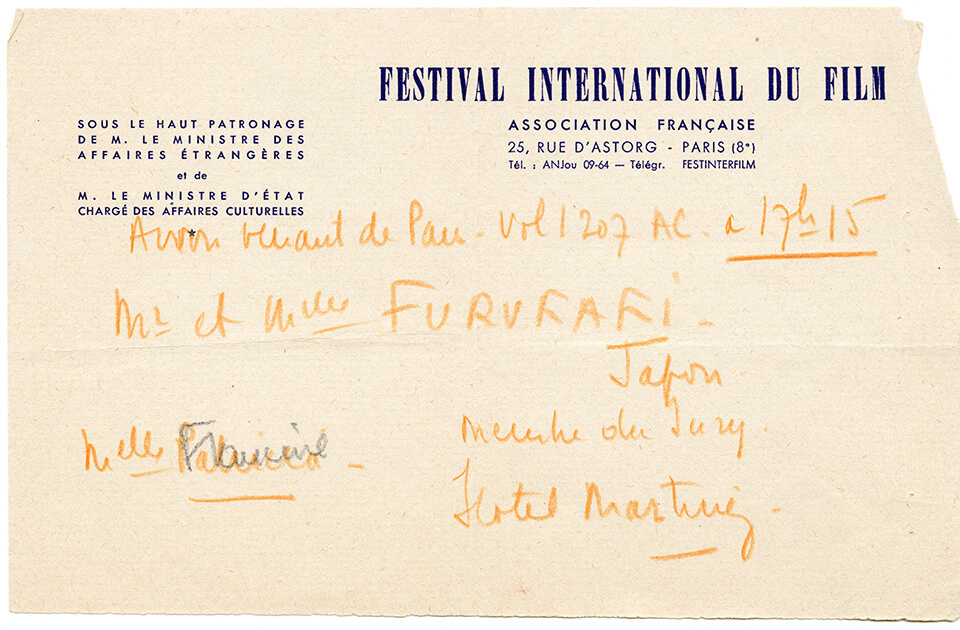 FESTIVAL INTERNATIONAL DU FILM
ASSOCIATION FRANÇAISE
25, RUE D'ASTORG - PARIS (8e)
Tél. : ANJou 09-64 — Télégr. FESTINTERFILM
SOUS LE HAUT PATRONAGE
DE M. LE MINISTRE DES
AFFAIRES ÉTRANGÈRES
et de
M. LE MINISTRE D'ÉTAT
CHARGÉ DES AFFAIRES CULTURELLES
Avion venant de Paris - Vol 1207 AC. a 17h15
Mr et Melle FURUKAKI -
Japon.
membre du Jury.
Melle -
Hotel Martinez -